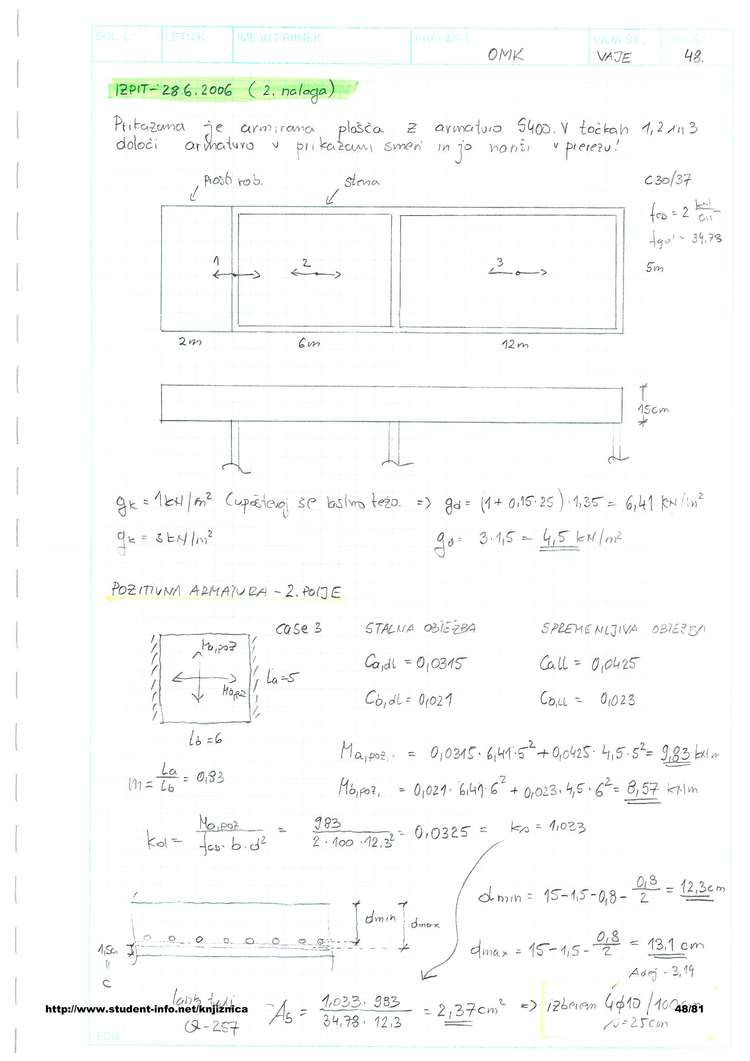 ŠOL. L. LETNIK IME IN PRIIMEK PREDMET VAJA ŠT. LIST ŠT.
OMK VAJE 48.
IZPIT - 28.6.2006 (2. naloga)
Prikazana je armirana plošča z armaturo S400. V točkah 1, 2 in 3
določi armaturo v prikazani smeri in jo nariši v prerezu!
Prosti rob. stena C30/37
fcd = 2 kN/cm²
34.78
1 2 3 5m
2m 6m 12m
15cm
gk = 1kN/m² (upoštevaj še lastno težo. => gd = (1 + 0,15·25)·1,35 = 6,41 kN/m²
qk = 3kN/m² qd = 3·1,5 = 4,5 kN/m²
POZITIVNA ARMATURA - 2. POLJE
case 3 STALNA OBTEŽBA SPREMENLJIVA OBTEŽBA
Ma,poz
Mb,poz La=5
Ca,dl = 0,0315 Ca,ll = 0,0425
Cb,dl = 0,021 Cb,ll = 0,023
Lb=6
Ma,poz. = 0,0315·6,41·5² + 0,0425·4,5·5² = 9,83 kNm
m = La/Lb = 0,83
Mb,poz. = 0,021·6,41·6² + 0,023·4,5·6² = 8,57 kNm
kd = Ma,poz / fcd·b·d² = 983 / 2·100·12.3² = 0,0325 = ks = 1,033
dmin = 15-1,5-0,8-0,8/2 = 12,3cm
dmin dmax
dmax = 15-1,5-0,8/2 = 13,1 cm
1,5cm
c
Adej = 3,14
Q-257
As = 1,033·983 / 34,78·12.3 = 2,37cm² => izberem 4ϕ10/100cm
s=25cm
http://www.student-info.net/knjiznica 48/81
FGG